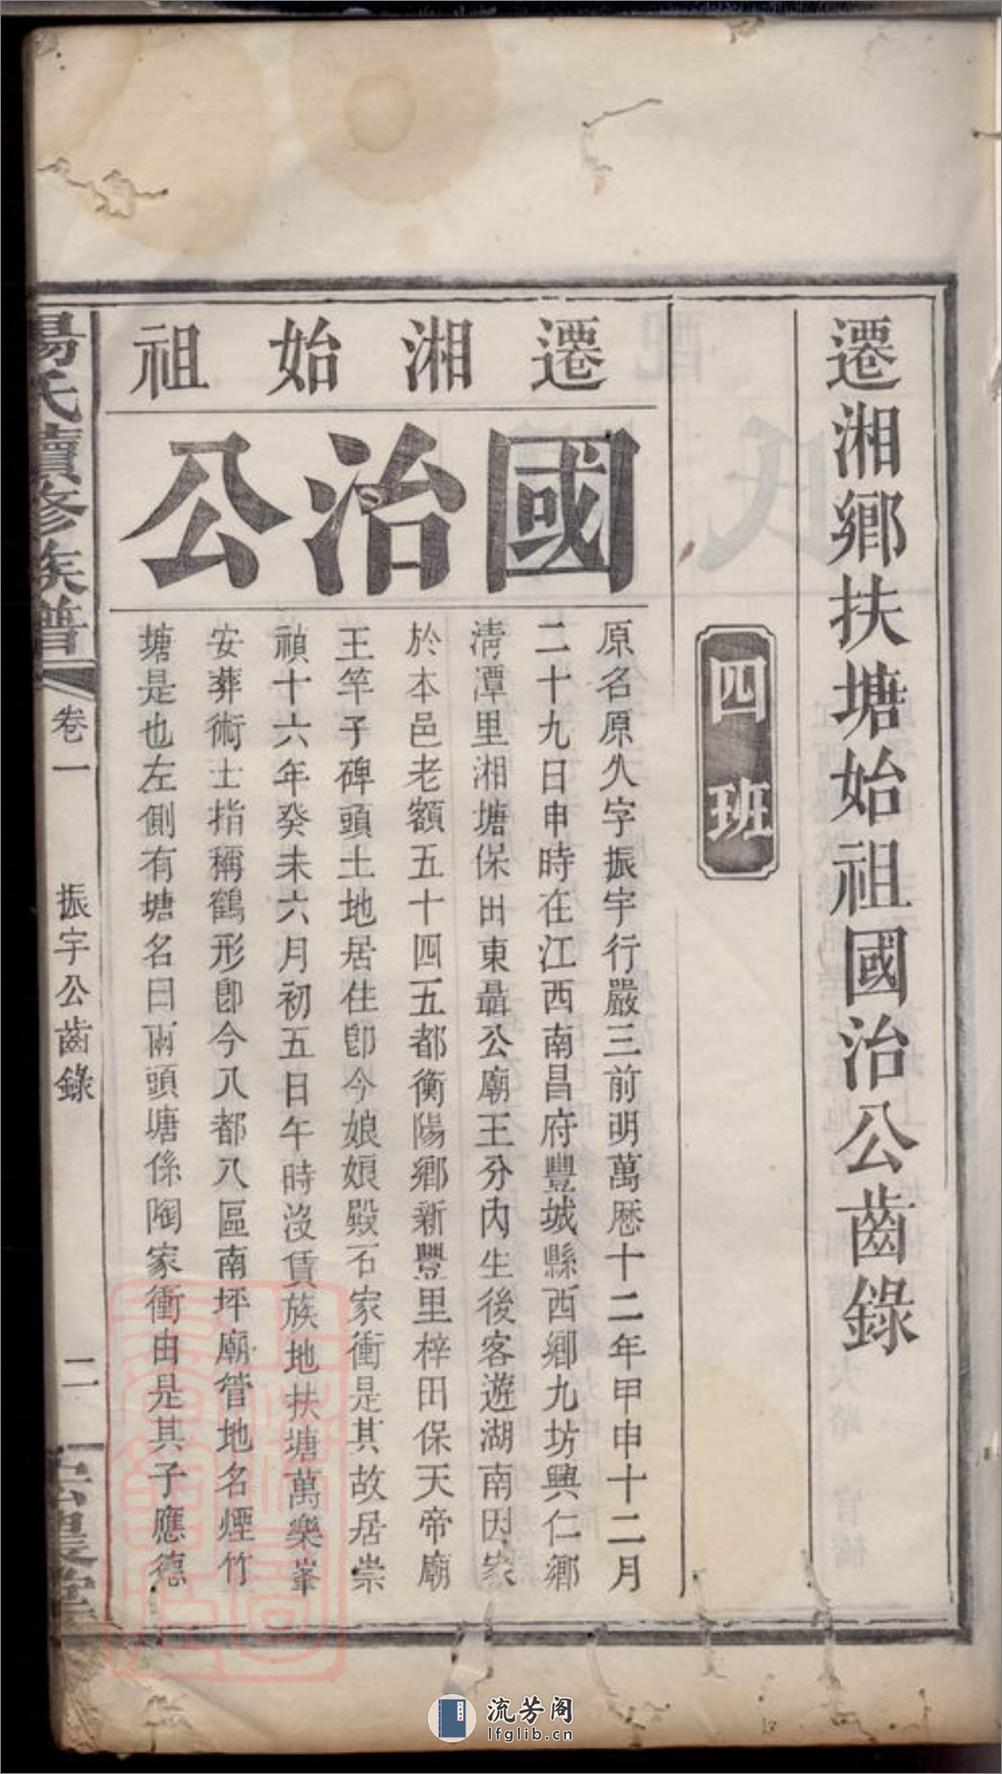 遷湘鄉扶塘始祖國治公齒錄
四班
遷湘始祖
國治公
原名原久字振宇行嚴三前明萬厯十二年甲申十二月
二十九日申時在江西南昌府豐城縣西鄉九坊興仁鄉
淸潭里湘塘保田東聶公廟王分內生後客遊湖南因家
於本邑老額五十四五都衡陽鄉新豐里梓田保天帝廟
王竿子碑頭土地居住卽今娘娘殿石家衝是其故居崇
禎十六年癸未六月初五日午時沒賃族地扶塘萬樂峯
安葬術士指稱鶴形卽今八都八區南坪廟管地名煙竹
塘是也左側有塘名曰兩頭塘係陶家衝由是其子應德
氏續修族譜
卷一
振宇公齒錄
二
流芳阁
lfglib.cn